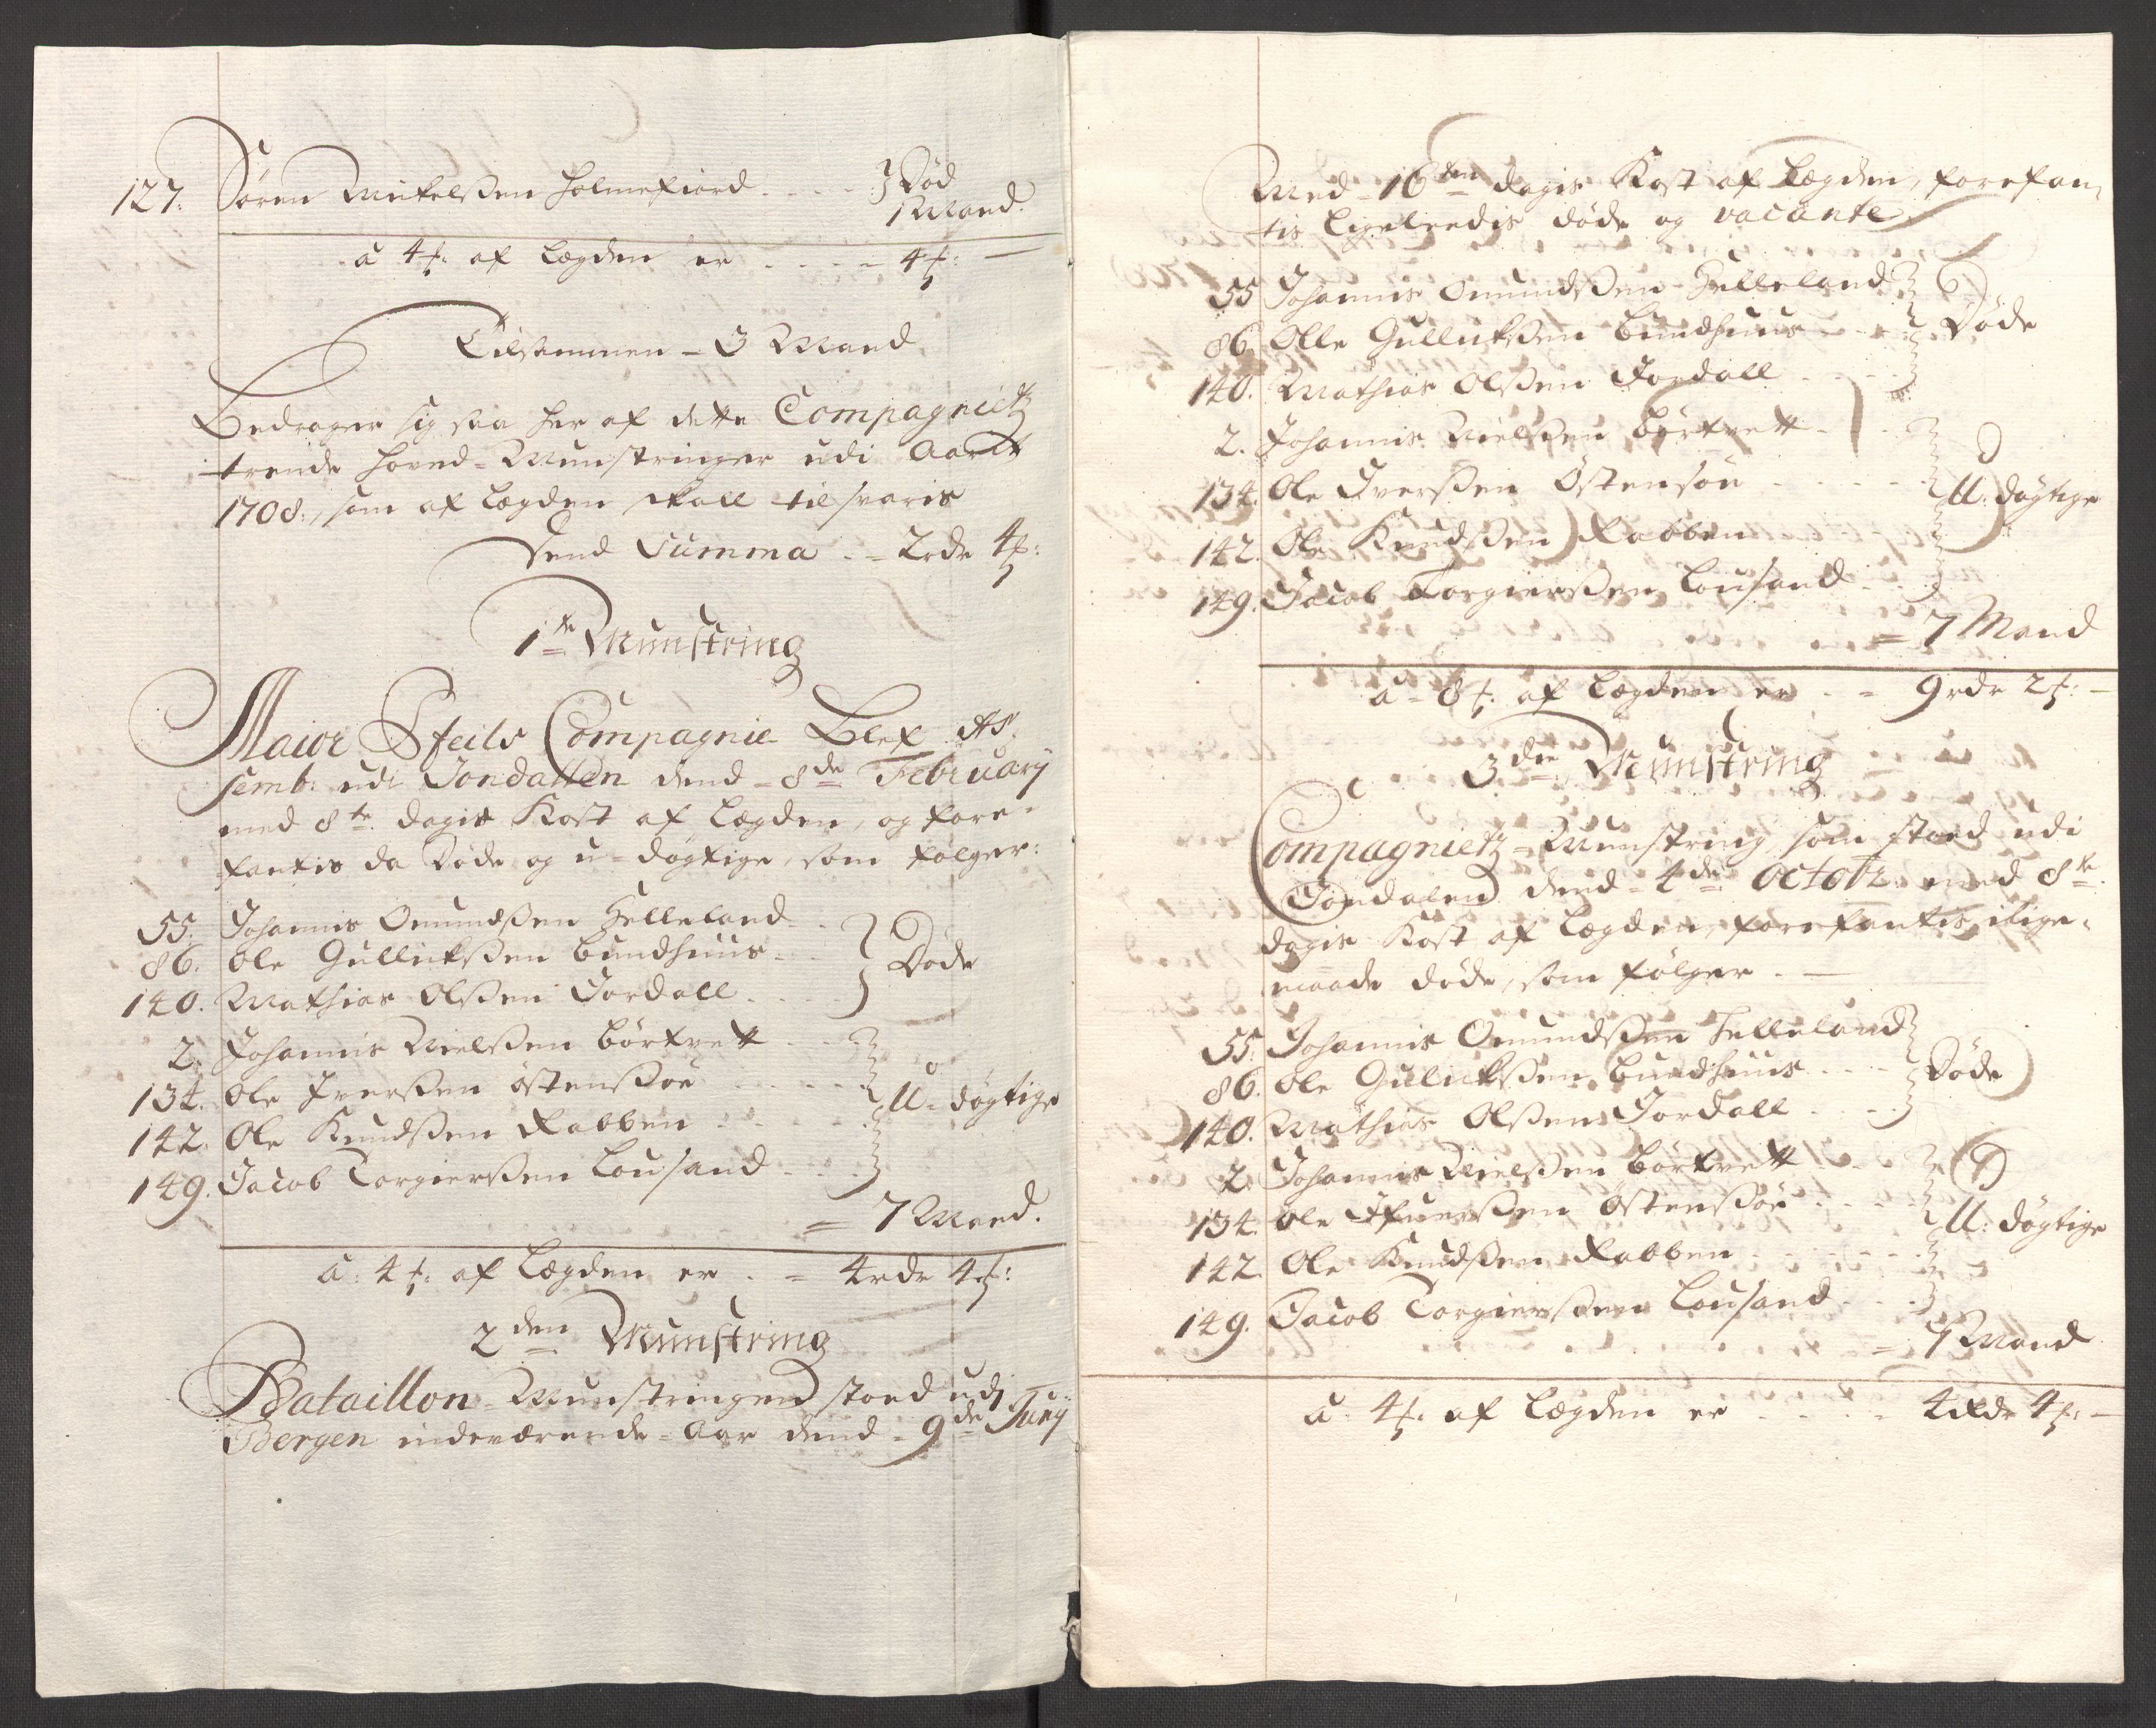 127. Søren Mikelsen Holmefiord - - - } Død
1 Mand.
a 4 ƒ: af Lægden er - - - - 4 ƒ: —
Tilsammen - 3 Mand
Bedrager sig saa her af dette Compagnietz
trende hoved-Munstringer udi Aaret
1708:, som af Lægden skall tilsvaris
dend Summa . - 2 rdr 4 ƒ:
1te Munstring
Maior Sfeils Compagnie Blef As-
semb: udi Jondallen dend - 8de February
med 8te dagis Kost af Lægden, og fore-
fantis da Døde og u-døgtige, som følger:
55. Johannis Omundßen Helleland - -
86. Ole Gullichßen Bundhuus - -
140. Mathias Olßen Jordall - - - } Døde
2. Johannis Nielßen Børkvett - -
134. Ole Iverßen Østensøe - - - - -
142. Ole Knudßen Rabben - - - - - U-døgtige
149. Jacob Torgierßen Lousand - -
= 7 Mand.
a: 4 ƒ: af Lægden er . - 4 rdr 4 ƒ:
2den Munstring
Bataillon-Munstringen stoed udj
Bergen indeværende-Aar dend - 9de Junj
Med - 16ten dagis Kost af Lægden, forefan-
tis ligeleedis døde og vacante
55 Johannis Omundßen Helleland
86. Olle Gullichßen Bundhuus - - Døde
140. Mathias Olßen Jordall - - -
2. Johannis Nielßen Børkvett - -
134. Ole Iverßen Østensøe - - - - - U: døgtige
142. Ole Knudßen Rabben
149. Jacob Torgierßen Lousand - -
= 7 Mand
a - 8 ƒ: af Lægden er - - 9 rdr 2 ƒ: —
3die Munstring
Compagnietz-Munstring som stoed udi
Jondalen dend - 4de Octobr: med 8te
dagis Kost af Lægden, forefantis i lige-
maade døde, som følger . —
55. Johannis Omundßen Helleland
86. Ole Gulichßen Bundhuus - - - Døde
140. Mathias Olßen Jordall - - -
2. Johannis Nielßen Børkvett - -
134. Ole Ifuerßen Østensøe - - - - U: døgtige
142. Ole Knudßen Rabben - - - - -
149. Jacob Torgierßen Lousand - -
= 7 Mand
a: 4 ƒ: af Lægden er - - - - 4 Rdr 4 ƒ: —